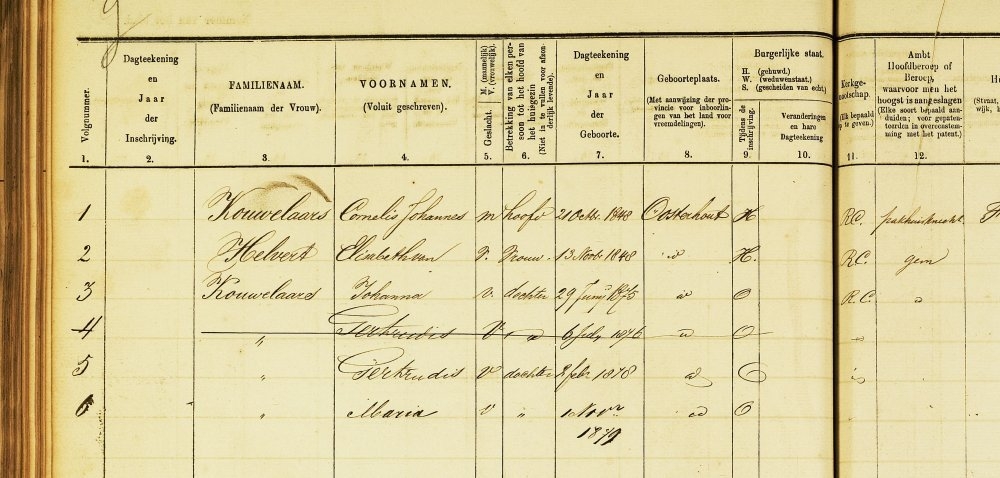 Volgnummer.
Dagteekening en Jaar der Inschrijving.
FAMILIENAAM. (Familienaam der Vrouw).
VOORNAMEN. (Voluit geschreven).
Geslacht. M. (mannelijk) V. (vrouwelijk).
Betrekking van elken persoon tot het hoofd van het huisgezin (Niet in te vullen voor afzonderlijk levende).
Dagteekening en Jaar der Geboorte.
Geboorteplaats. (Met aanwijzing der provincie voor inboorlingen van het land voor vreemdelingen).
Burgerlijke staat.
H. (gehuwd.)
W. (weduwenstaat.)
S. (gescheiden van echt)
Tijdens de inschrijving.
Veranderingen en hare Dagteekening
Kerkgenootschap. (Elk bepaald op te geven.)
Ambt Hoofdberoep of Beroep, waarvoor men het hoogst is aangeslagen (Elke soort bepaald aanduiden; voor gepatenteerden in overeenstemming met het patent.)
(Straat, wijk,
1. 2. 3. 4. 5. 6. 7. 8. 9. 10. 11. 12.
1 Kouwelaars Cornelis Johannes m hoofd 21 Octr. 1848 Oosterhout H R.C. pakhuisknecht
2 Helvert Elisabeth van V. Vrouw. 13 Novbr 1848 id H. R.C. gem
3 Kouwelaars Johanna v. dochter 29 Juny 1875 id O R.C. "
4 " Gertrudis V. id 6 July 1876 id O
5 " Gertrudis V dochter 2 febr 1878 id O id
6 " Maria v " 1 Novr 1879 id O